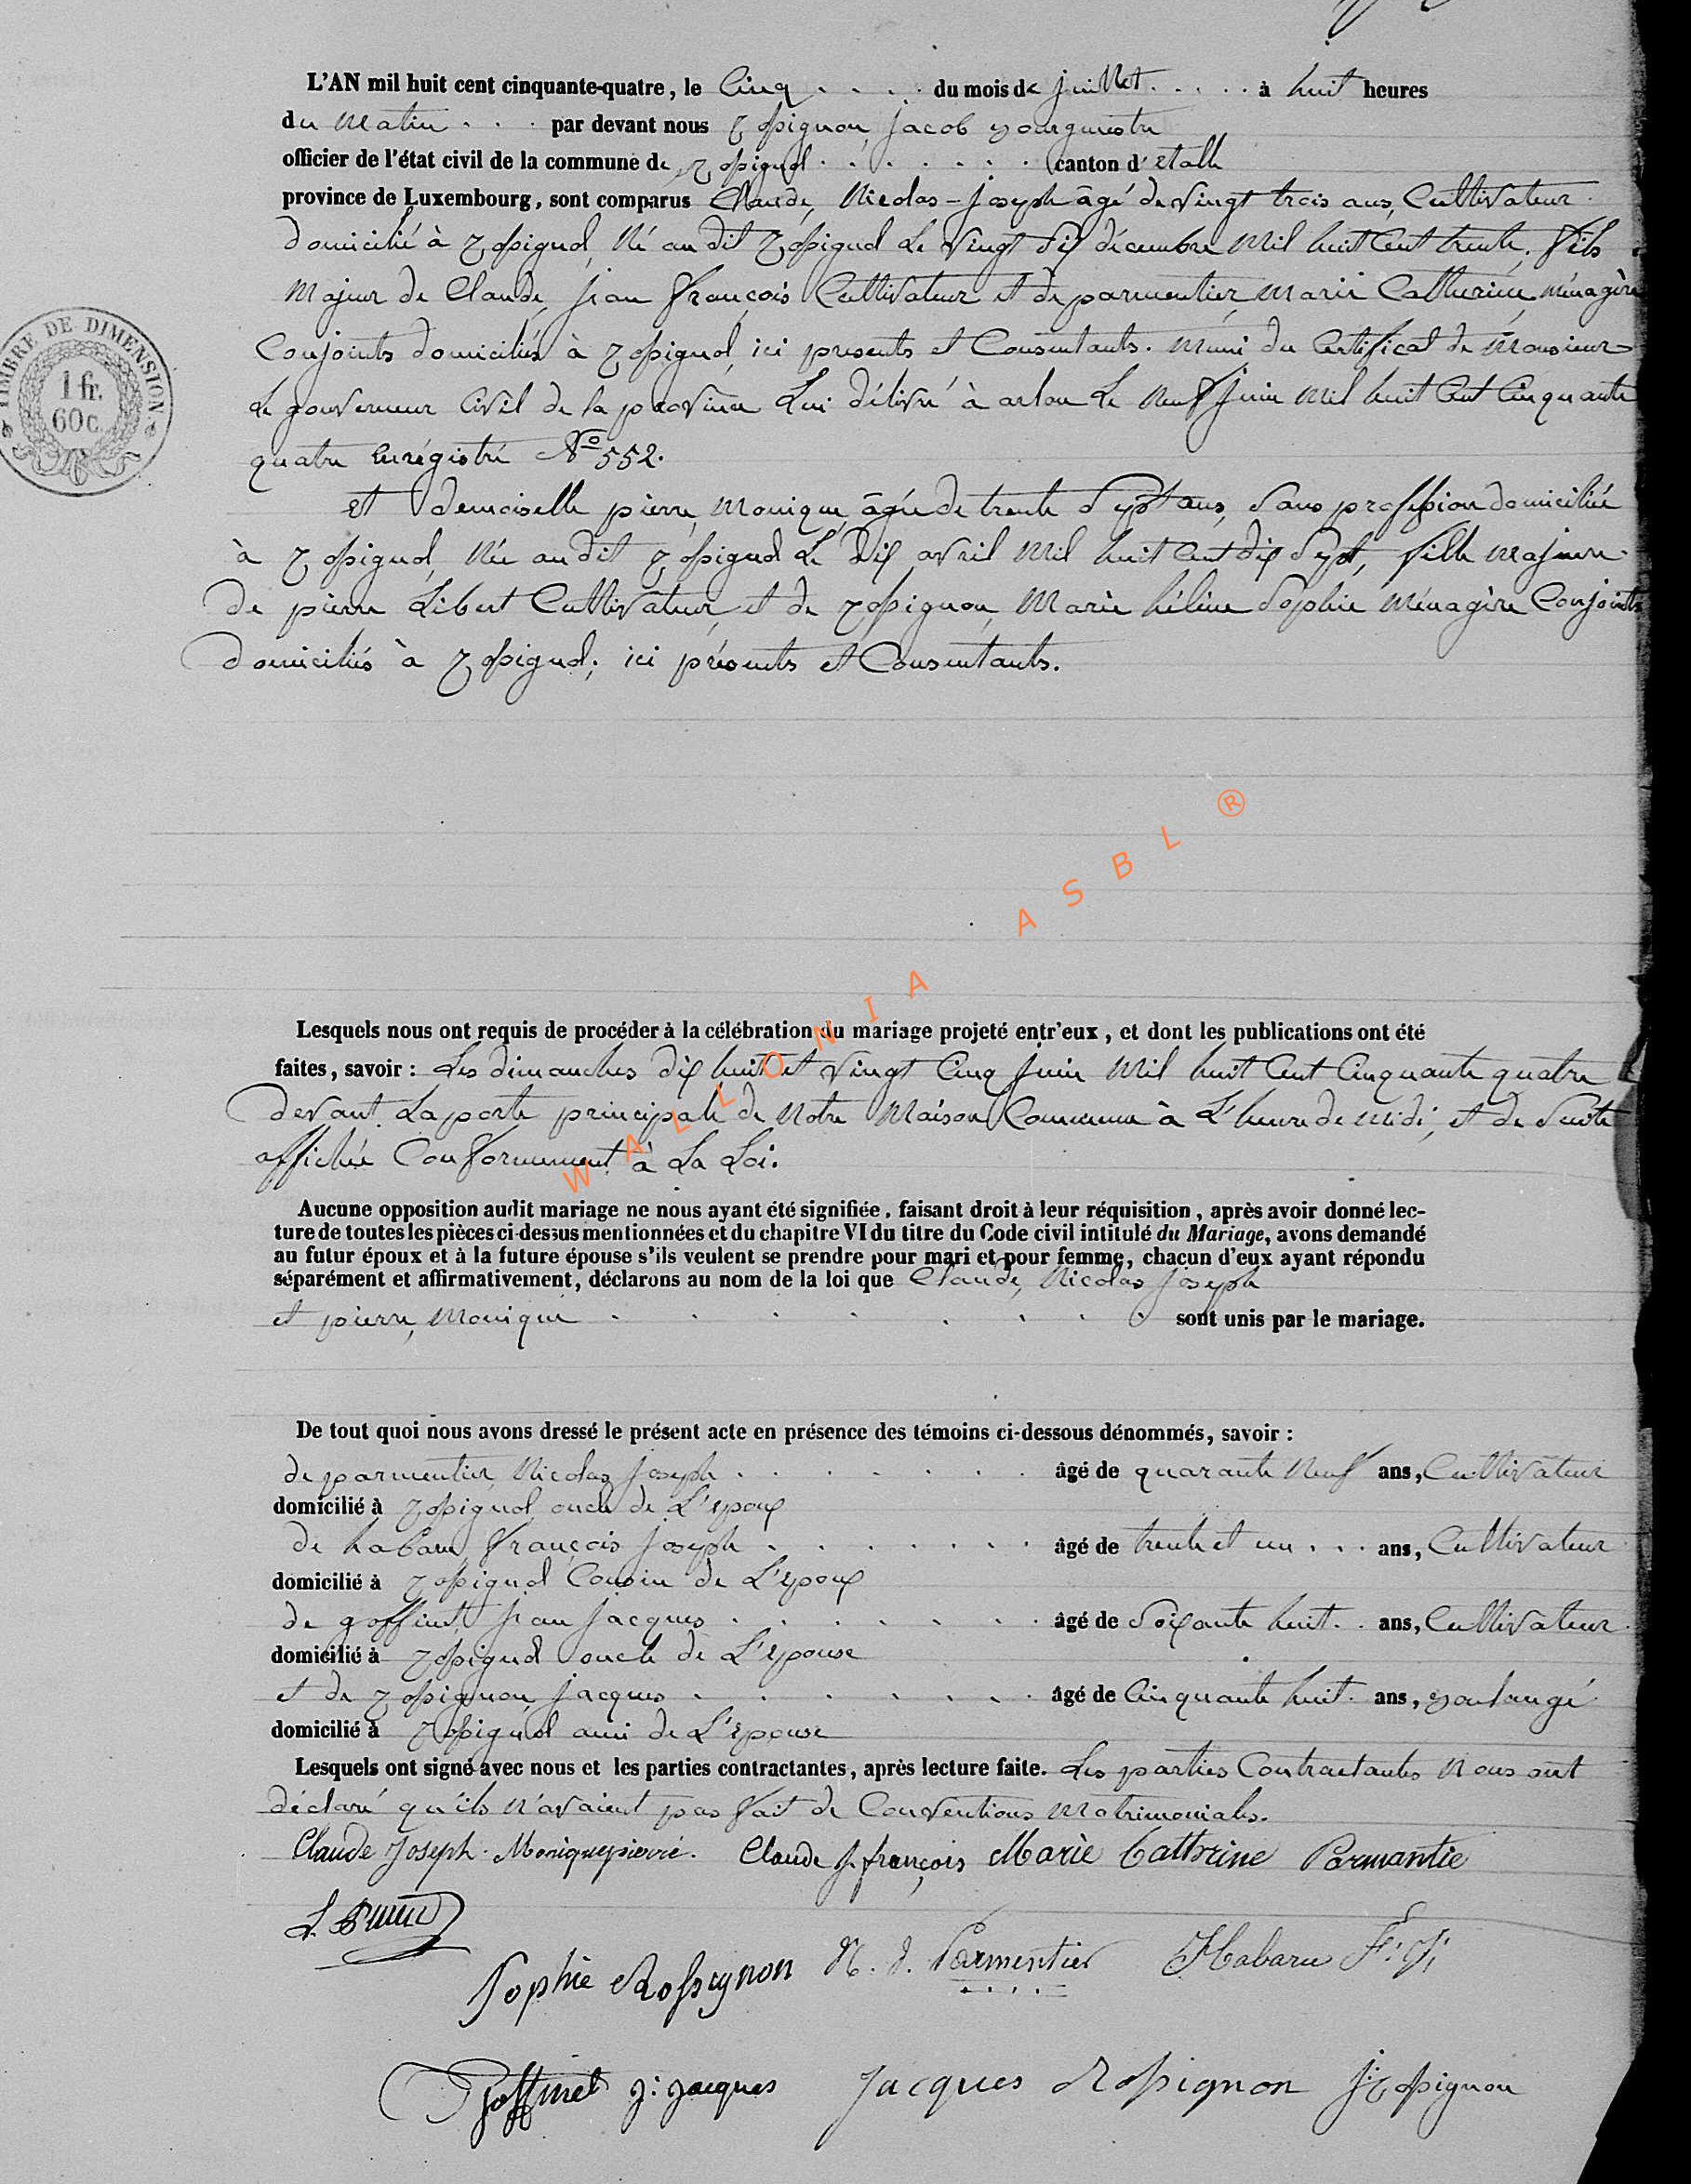 L'AN mil huit cent cinquante-quatre, le Cinq . . . . du mois de juillet . . . . . à huit heures
du matin . . . par devant nous rossignon, jacob bourguestre
officier de l'état civil de la commune de rossignol . . . . . . . canton d'etalle
province de Luxembourg, sont comparus Claude, Nicolas-joseph âgé de vingt trois ans, Cultivateur
domicilié à rossignol, Né au dit rossignol Le vingt six décembre Mil huit Cent trente. fils
Majeur de Claude, jean françois Cultivateur et de parmentier, marie Catherine, ménagère
Conjoints domiciliés à rossignol, ici presents et Consentants. Muni du Certificat de Monsieur
Le gouverneur Civil de la province Lui délivré à arlon Le Neuf juin Mil huit Cent Cinquante
quatre Enrégistré Nº 552.
et demoiselle pierre, Monique, âgée de trente Sept ans, Sans profession domiciliée
à rossignol, Née au dit rossignol Le dix avril Mil huit Cent dix Sept, fille majeure
de pierre Libert Cultivateur, et de rossignon, Marie héline Sophie Ménagère Conjoints
domiciliés à rossignol; ici présents et Consentants.
TIMBRE DE DIMENSION
1 fr.
60 c.
WALLONIA ASBL ®
Lesquels nous ont requis de procéder à la célébration du mariage projeté entr'eux, et dont les publications ont été
faites, savoir : Les dimanches dix huit et vingt Cinq juin Mil huit Cent Cinquante quatre
devant La porte principale de Notre Maison Commune à L'heure de midi, et de Suite
affichée Conformement à La Loi.
Aucune opposition audit mariage ne nous ayant été signifiée, faisant droit à leur réquisition, après avoir donné lec-
ture de toutes les pièces ci-dessus mentionnées et du chapitre VI du titre du Code civil intitulé du Mariage, avons demandé
au futur époux et à la future épouse s'ils veulent se prendre pour mari et pour femme, chacun d'eux ayant répondu
séparément et affirmativement, déclarons au nom de la loi que Claude, Nicolas joseph
et pierre, Monique . . . . . . . . sont unis par le mariage.
De tout quoi nous avons dressé le présent acte en présence des témoins ci-dessous dénommés, savoir :
de parmentier, Nicolas joseph . . . . . . . âgé de quarante Neuf ans, Cultivateur
domicilié à rossignol oncle de L'epoux
de habaru françois joseph . . . . . . . âgé de trente et un . . . ans, Cultivateur
domicilié à rossignol Cousin de L'epoux
de goffinet, jean jacques . . . . . . . âgé de Soixante huit . . ans, Cultivateur
domicilié à rossignol oncle de L'epouse
et de rossignon, jacques . . . . . . . âgé de Cinquante huit . ans, boulangé
domicilié à rossignol ami de L'epouse
Lesquels ont signé avec nous et les parties contractantes, après lecture faite. Les parties Contractantes Nous ont
déclaré qu'ils N'avaient pas fait de Conventions Matrimoniales.
Claude Joseph. Moniquepierre. Claude J. françois Marie Cathrine Parmantie
Sophie Rossignon N. J. Parmentier Habaru F. J.
Goffinet J: Jacques Jacques Rossignon J. rossignon